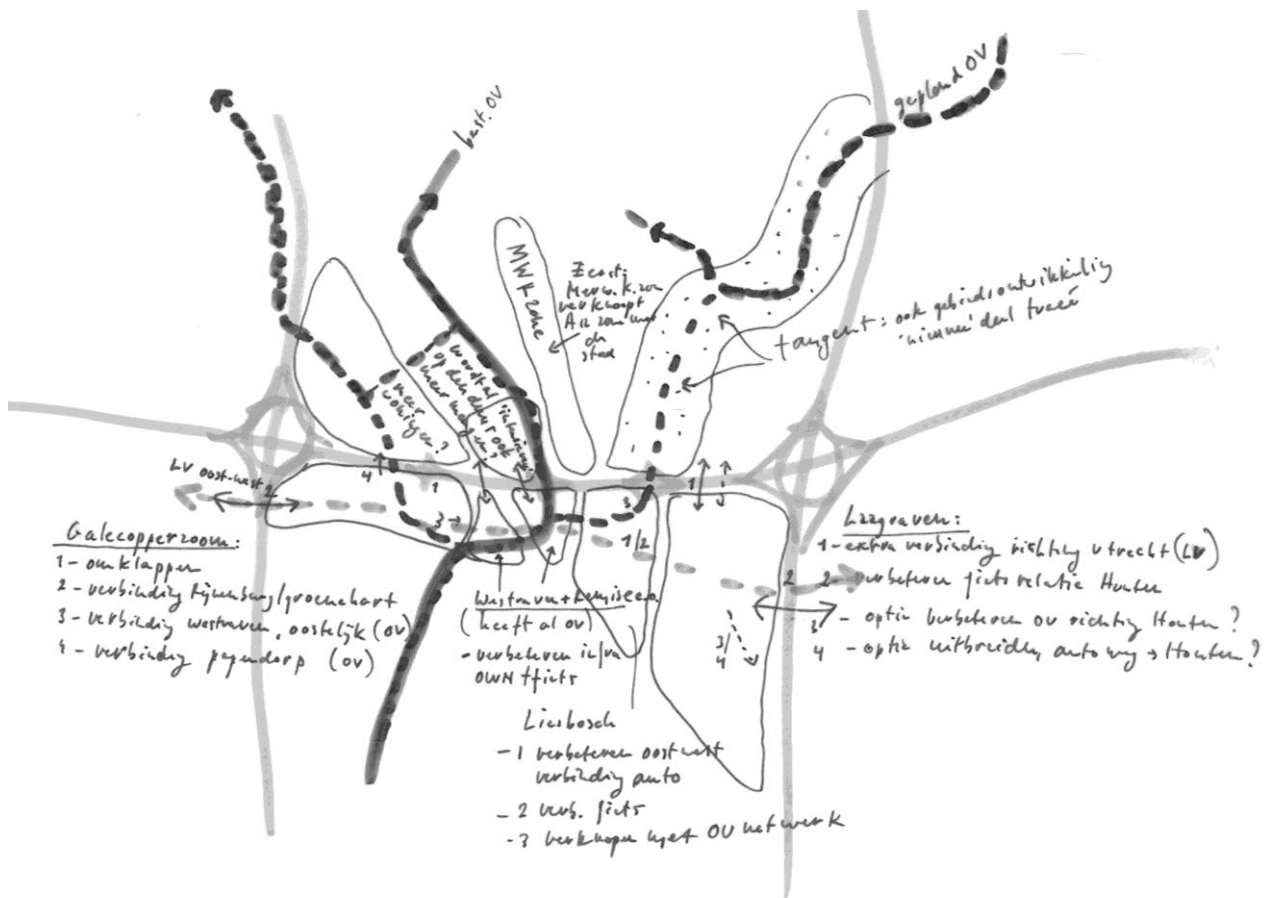 gepland OV
best. OV
MWKzone
Zeost:
Merw.k.zon
verknoopt
A12 zone met
de
stad
tangent: ook gebiedsontwikkeling
'nieuwe' deel tracé
meer
woningen?
wordt al intensivering
op den duur ook
meer wonen?
LV oost-west
2
4
1
3
3
1/2
1
2
3/
4
Galecopperzoom:
1 - omklapper
2 - verbinding Rijnenburg/groenehart
3 - verbinding westraven, oostelijk (OV)
4 - verbinding papendorp (OV)
Westraven +
(heeft al OV)
- verbeteren infra
OWN + fiets
Liesbosch
- 1 verbeteren oostwest
verbinding auto
- 2 verb. fiets
- 3 verknopen met OV netwerk
Laagraven:
1 - extra verbinding richting Utrecht (LV)
2 - verbeteren fietsrelatie Houten
3 - optie verbeteren OV richting Houten?
4 - optie uitbreiden autoweg → Houten?